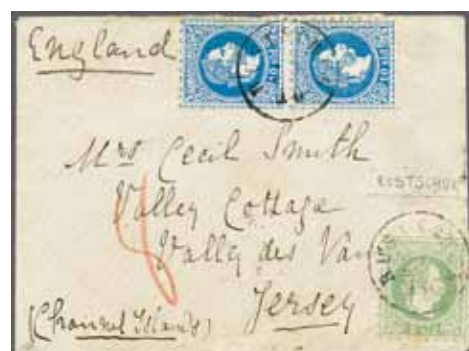 England
Mrs Cecil Smith
Valley Cottage
Valley des Vaux
Jersey
(Channel Islands)